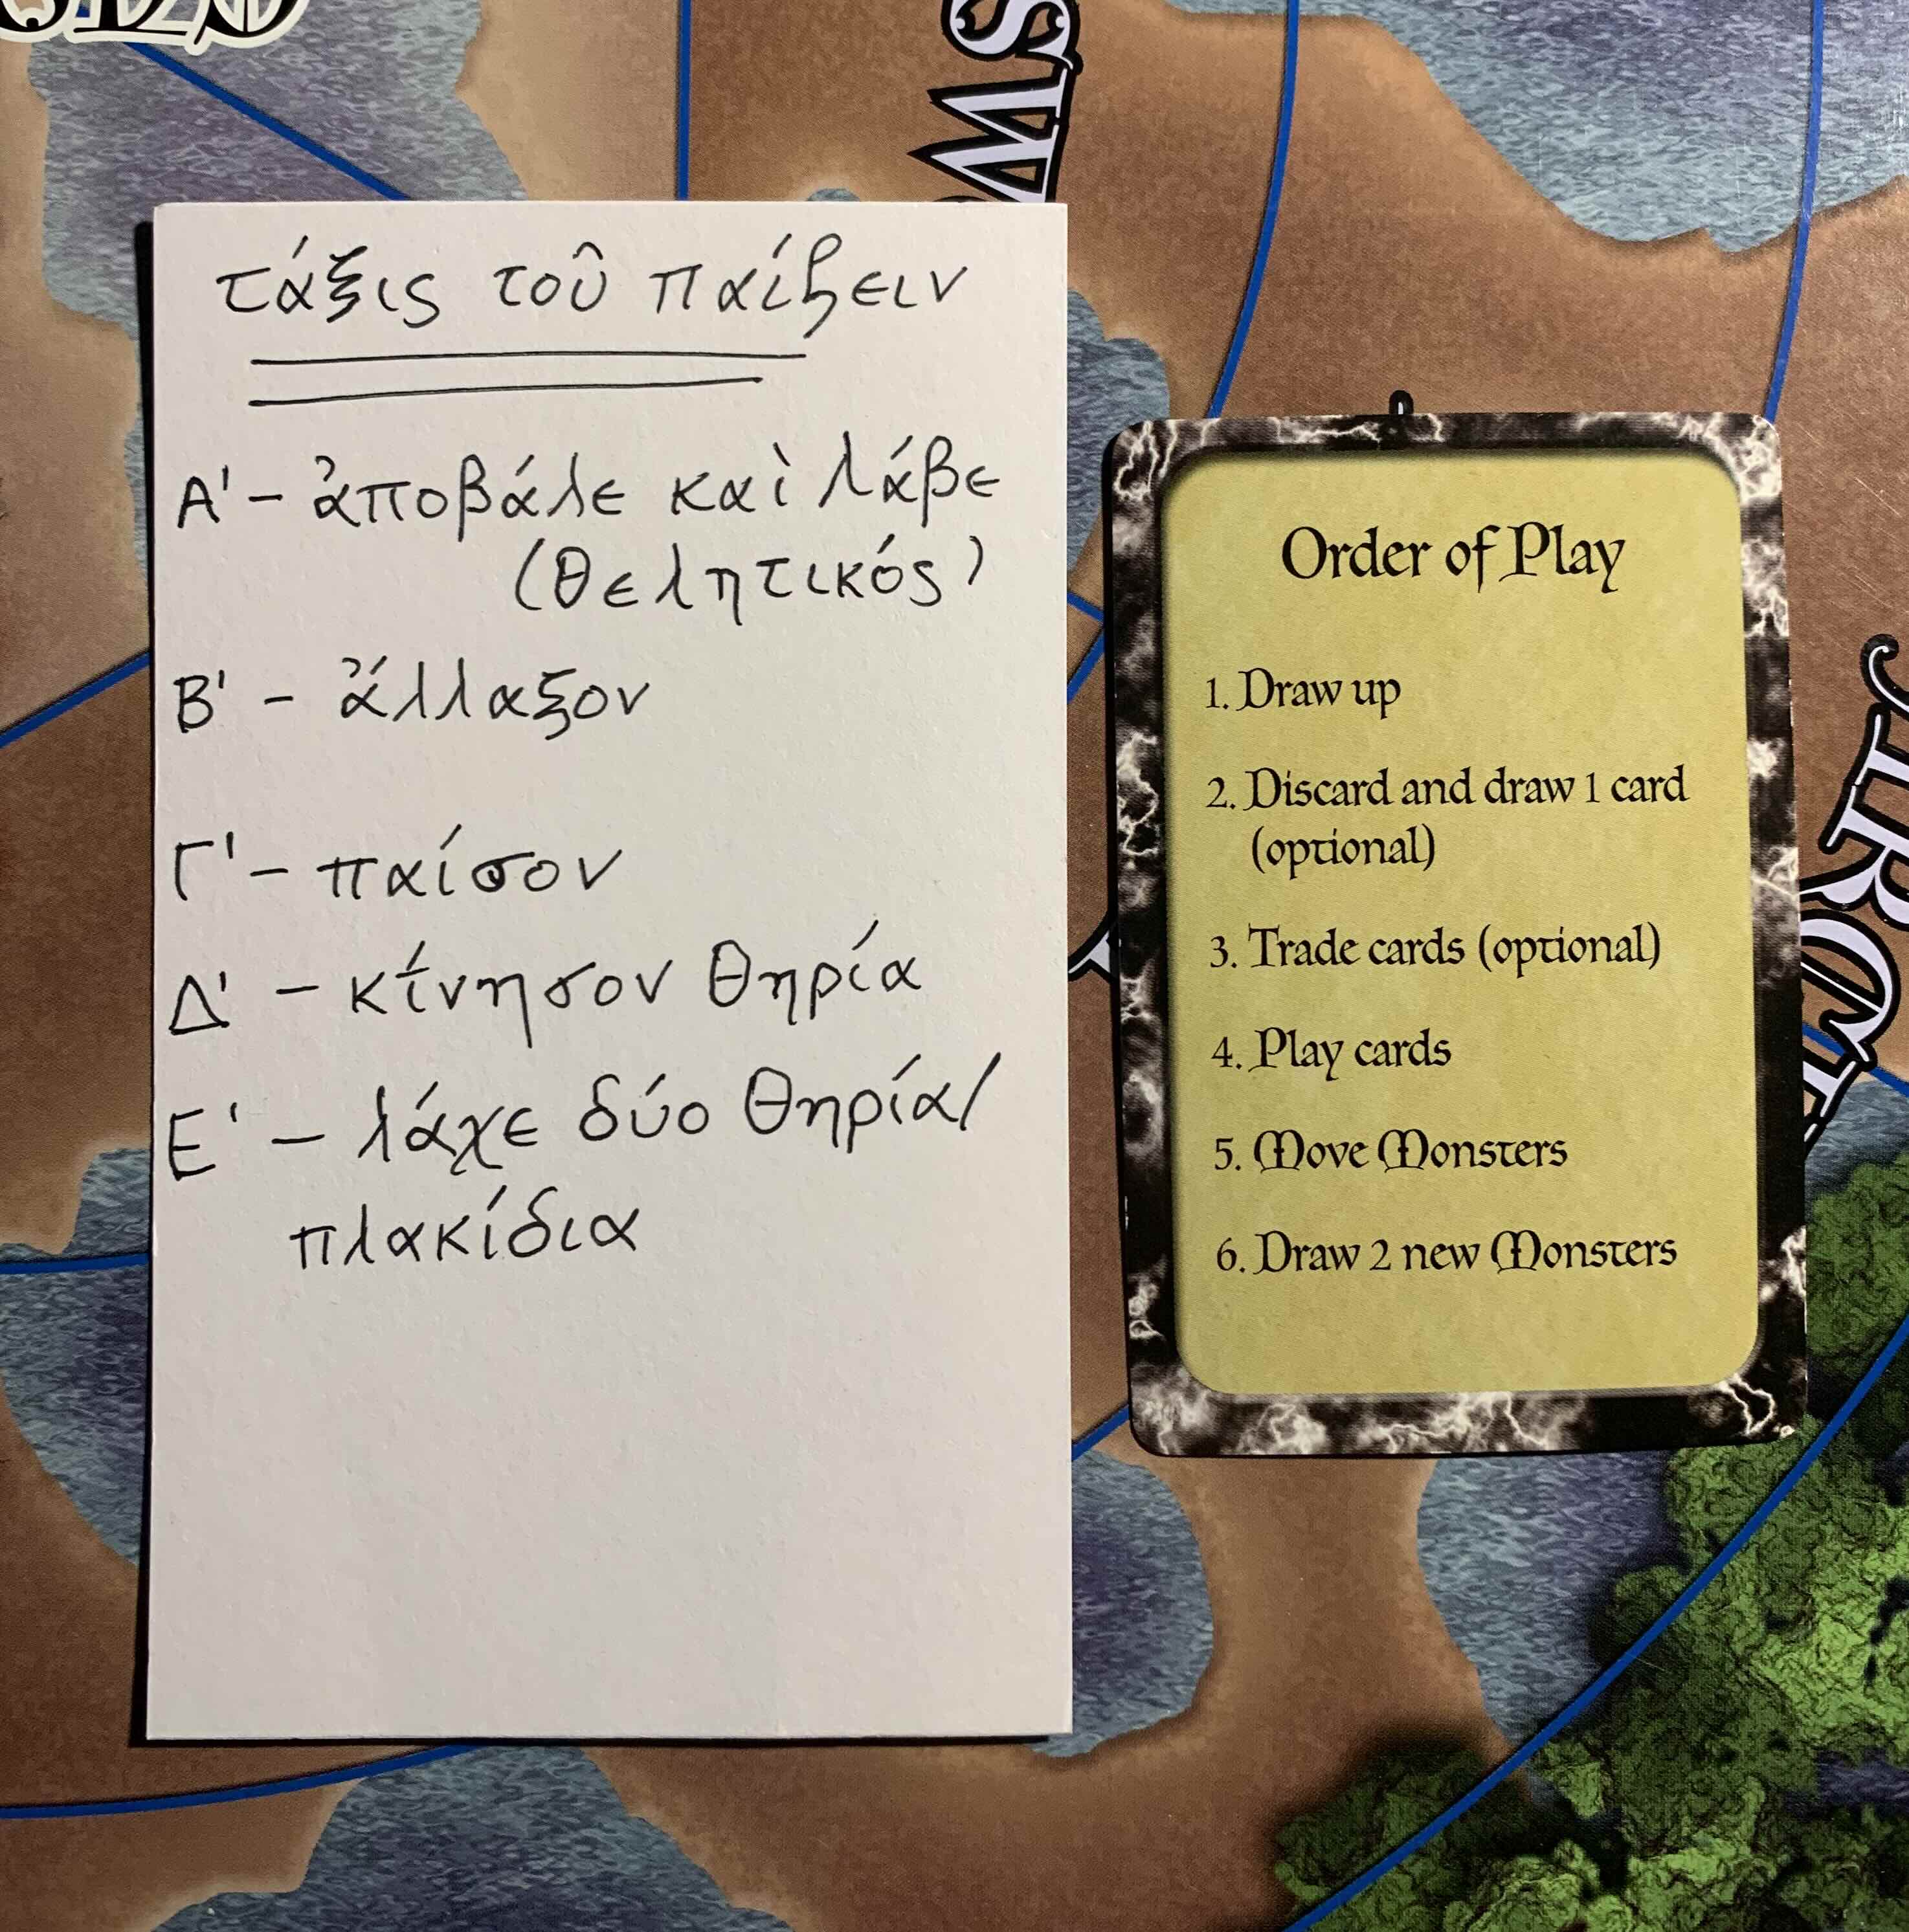 τάξις τοῦ παίζειν
Α' - ἀποβάλε καὶ λάβε
(θελητικός)
Β' - ἄλλαξον
Γ' - παίσον
Δ' - κίνησον θηρία
Ε' - λάχε δύο θηρία/
πλακίδια
Order of Play
1. Draw up
2. Discard and draw 1 card
(optional)
3. Trade cards (optional)
4. Play cards
5. Move Monsters
6. Draw 2 new Monsters